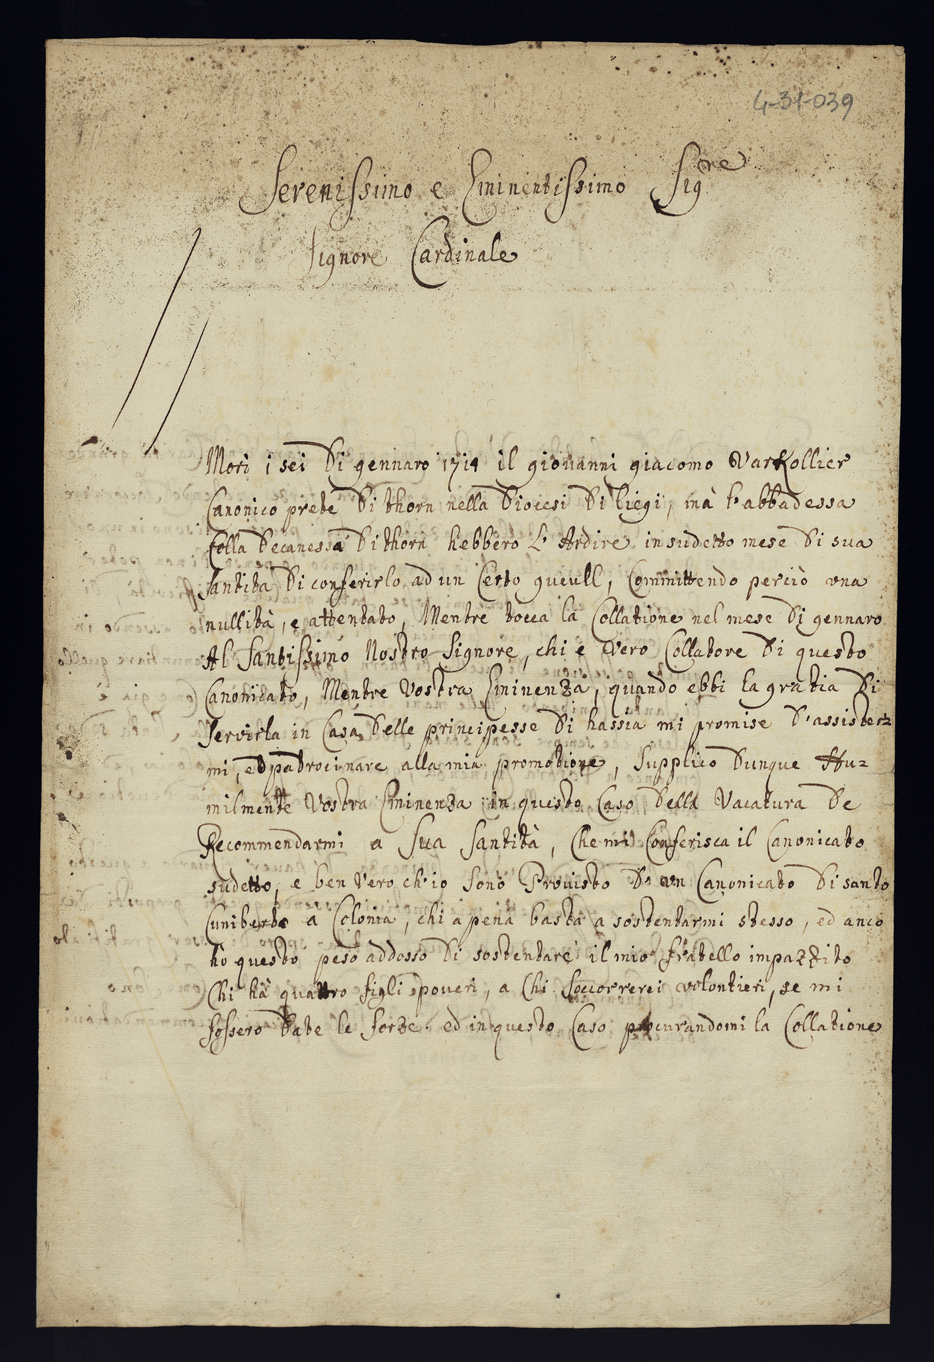 4-31-039
Serenissimo e Eminentissimo Sig.re
Signore Cardinale
Morì i sei di gennaro 1714 il giovanni giacomo Varkollier
Canonico prete di thorn nella diocesi di liegi, mà l'abbadessa
Colla decanessa di thorn hebbero l'Ardire in sudetto mese di sua
santità di conferirlo ad un Certo gueull, Committendo perciò una
nullità, e attentato, Mentre tocca la Collatione nel mese di gennaro
Al Santissimo Nostro Signore, chi è vero Collatore di questo
Canonicato, Mentre Vostra Eminenza, quando ebbi la gratia di
servirla in Casa delle principesse di hassia mi promise d'assister=
mi, ed patrocinare alla mia promotione, supplico dunque Hu=
milmente Vostra Eminenza in questo Caso della Vacatura de
Recommendarmi a sua santità, che mi Conferisca il Canonicato
sudetto, e ben vero ch'io sono Provisto d'un Canonicato di santo
Cuniberto a Colonia, chi apena basta a sostentarmi stesso, ed anco
ho questo peso addosso di sostentare il mio fratello impazzito
Chi hà quattro figli poveri, a chi soccorrerei volontieri, se mi
fossero date le forze. ed in questo Caso procurandomi la Collatione